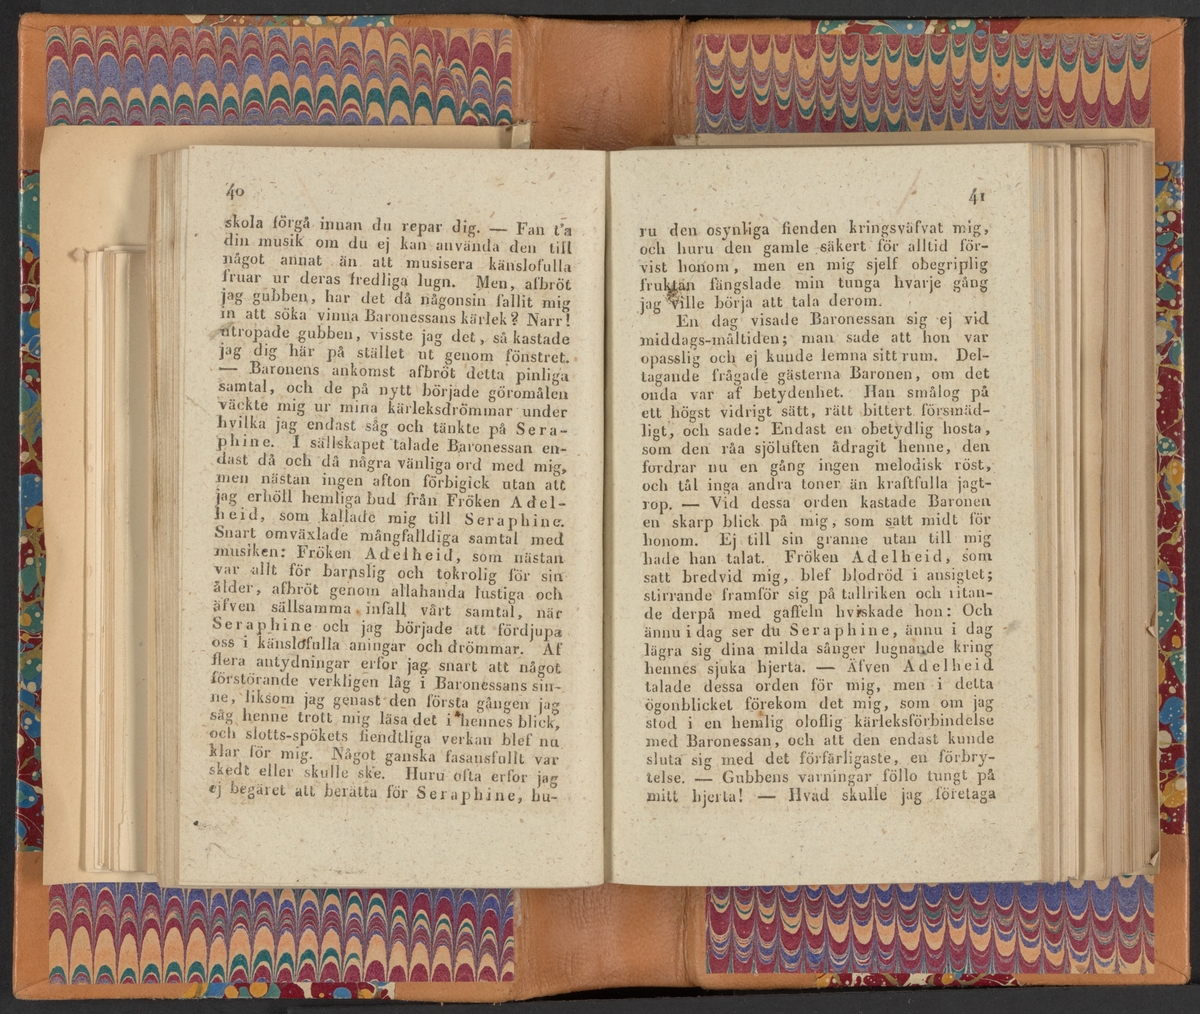 40
skola förgå innan du repar dig. — Fan t'a
din musik om du ej kan använda den till
något annat än att musisera känslofulla
fruar ur deras fredliga lugn. Men, afbröt
jag gubben, har det då någonsin fallit mig
in att söka vinna Baronessans kärlek? Narr!
utropade gubben, visste jag det, så kastade
jag dig här på stället ut genom fönstret.
— Baronens ankomst afbröt detta pinliga
samtal, och de på nytt började göromålen
väckte mig ur mina kärleksdrömmar under
hvilka jag endast såg och tänkte på Sera-
phine. I sällskapet talade Baronessan en-
dast då och då några vänliga ord med mig,
men nästan ingen afton förbigick utan att
jag erhöll hemliga bud från Fröken Adel-
heid, som kallade mig till Seraphine.
Snart omväxlade mångfalldiga samtal med
musiken: Fröken Adelheid, som nästan
var allt för barnslig och tokrolig för sin
ålder, afbröt genom allahanda lustiga och
äfven sällsamma infall vårt samtal, när
Seraphine och jag började att fördjupa
oss i känslofulla aningar och drömmar. Af
flera antydningar erfor jag snart att något
förstörande verkligen låg i Baronessans sin-
ne, liksom jag genast den första gången jag
såg henne trott mig läsa det i hennes blick,
och slotts-spökets fiendtliga verkan blef nu
klar för mig. Något ganska fasansfullt var
skedt eller skulle ske. Huru ofta erfor jag
ej begäret att berätta för Seraphine, hu-
41
ru den osynliga fienden kringsväfvat mig,
och huru den gamle säkert för alltid för-
vist honom, men en mig sjelf obegriplig
fruktan fängslade min tunga hvarje gång
jag ville börja att tala derom.
En dag visade Baronessan sig ej vid
middags-måltiden; man sade att hon var
opasslig och ej kunde lemna sitt rum. Del-
tagande frågade gästerna Baronen, om det
onda var af betydenhet. Han smålog på
ett högst vidrigt sätt, rätt bittert försmäd-
ligt, och sade: Endast en obetydlig hosta,
som den råa sjöluften ådragit henne, den
fordrar nu en gång ingen melodisk röst,
och tål inga andra toner än kraftfulla jagt-
rop. — Vid dessa orden kastade Baronen
en skarp blick på mig, som satt midt för
honom. Ej till sin granne utan till mig
hade han talat. Fröken Adelheid, som
satt bredvid mig, blef blodröd i ansigtet;
stirrande framför sig på tallriken och ritan-
de derpå med gaffeln hviskade hon: Och
ännu i dag ser du Seraphine, ännu i dag
lägra sig dina milda sånger lugnande kring
hennes sjuka hjerta. — Äfven Adelheid
talade dessa orden för mig, men i detta
ögonblicket förekom det mig, som om jag
stod i en hemlig oloflig kärleksförbindelse
med Baronessan, och att den endast kunde
sluta sig med det förfärligaste, en förbry-
telse. — Gubbens varningar föllo tungt på
mitt hjerta! — Hvad skulle jag företaga